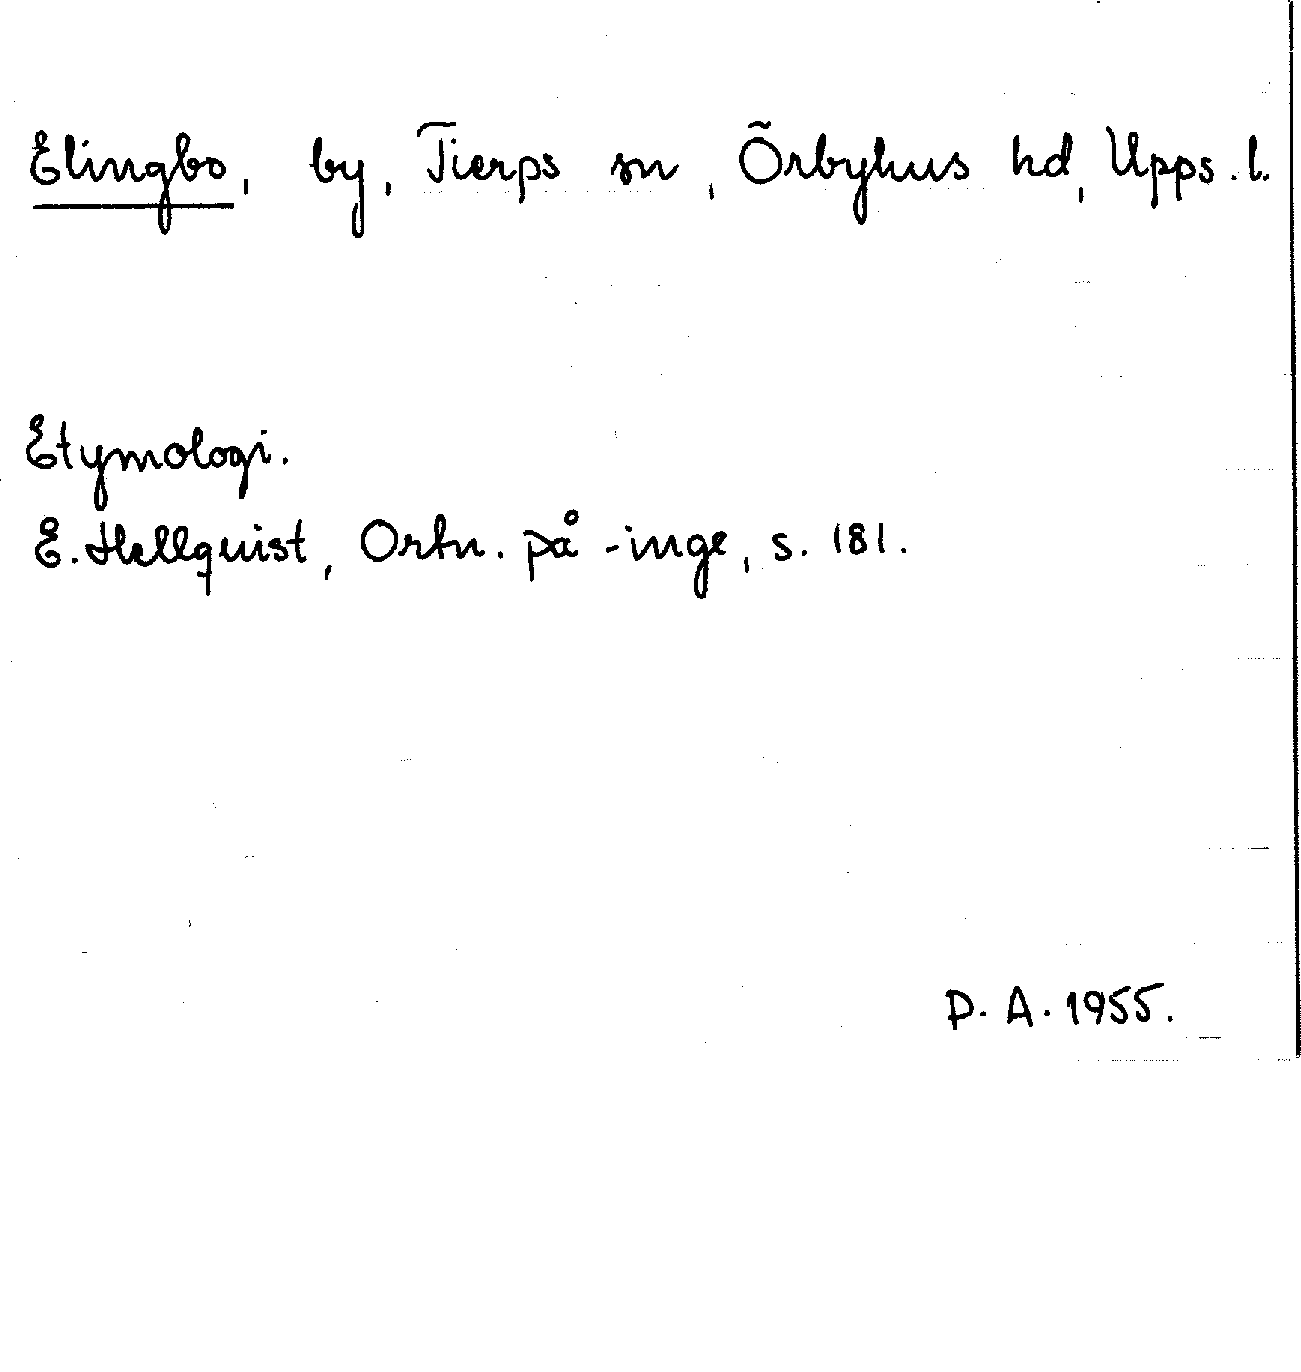 Elingbo, by, Tierps sn, Örbyhus hd, Upps. l.
Etymologi.
E. Hellquist, Ortn. på -inge, s. 181.
P. A. 1955.